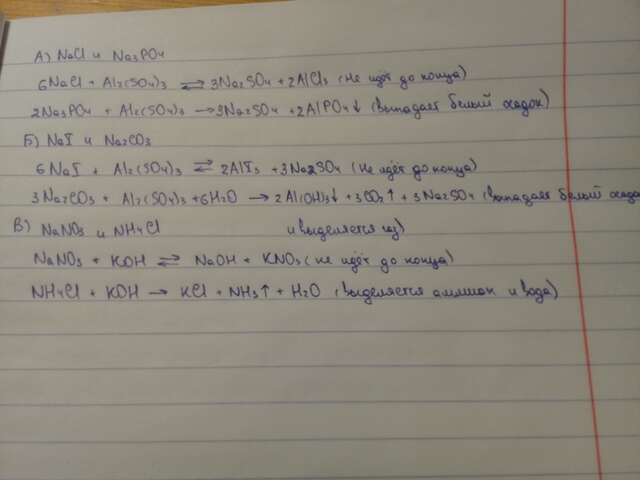 А) NaCl и Na₃PO₄
6NaCl + Al₂(SO₄)₃ ⇌ 3Na₂SO₄ + 2AlCl₃ (не идёт до конца)
2Na₃PO₄ + Al₂(SO₄)₃ → 3Na₂SO₄ + 2AlPO₄↓ (выпадает белый осадок)
Б) NaI и Na₂CO₃
6NaI + Al₂(SO₄)₃ ⇌ 2AlI₃ + 3Na₂SO₄ (не идёт до конца)
3Na₂CO₃ + Al₂(SO₄)₃ + 6H₂O → 2Al(OH)₃↓ + 3CO₂↑ + 3Na₂SO₄ (выпадает белый осадо
и выделяется газ)
В) NaNO₃ и NH₄Cl
NaNO₃ + KOH ⇌ NaOH + KNO₃ (не идёт до конца)
NH₄Cl + KOH → KCl + NH₃↑ + H₂O (выделяется аммиак и вода)